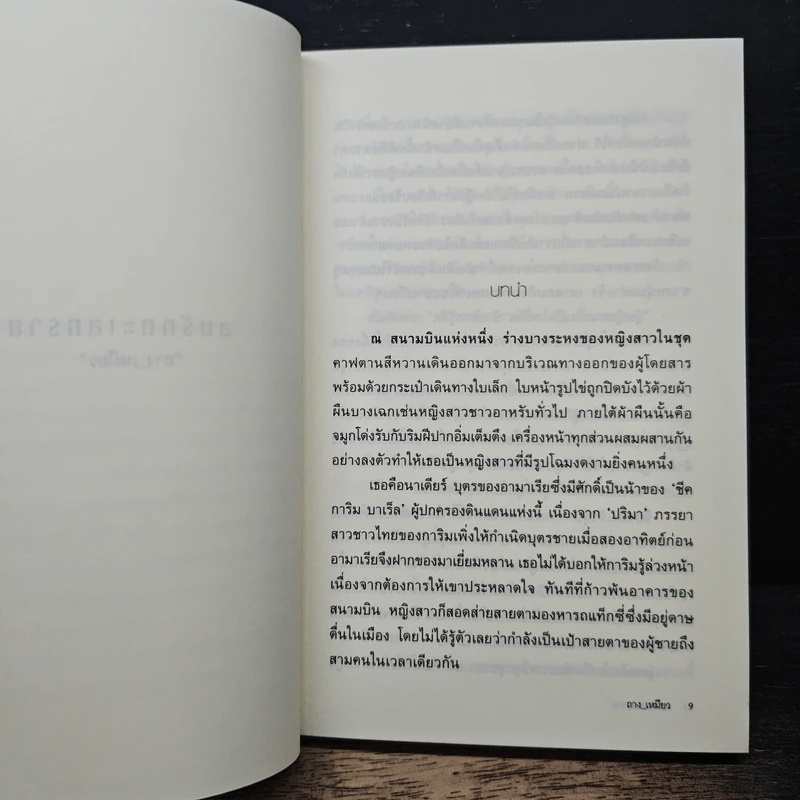 บทนำ
ณ สนามบินแห่งหนึ่ง ร่างบางระหงของหญิงสาวในชุด
คาฟตานสีหวานเดินออกมาจากบริเวณทางออกของผู้โดยสาร
พร้อมด้วยกระเป๋าเดินทางใบเล็ก ใบหน้ารูปไข่ถูกปิดบังไว้ด้วยผ้า
ผืนบางเฉกเช่นหญิงสาวชาวอาหรับทั่วไป ภายใต้ผ้าผืนนั้นคือ
จมูกโด่งรับกับริมฝีปากอิ่มเต็มตึง เครื่องหน้าทุกส่วนผสมผสานกัน
อย่างลงตัวทำให้เธอเป็นหญิงสาวที่มีรูปโฉมงดงามยิ่งคนหนึ่ง
เธอคือนาเดียร์ บุตรของอามาเรียซึ่งมีศักดิ์เป็นน้าของ ‘ชีค
การิม บาเร็ล’ ผู้ปกครองดินแดนแห่งนี้ เนื่องจาก ‘ปริมา’ ภรรยา
สาวชาวไทยของการิมเพิ่งให้กำเนิดบุตรชายเมื่อสองอาทิตย์ก่อน
อามาเรียจึงฝากของมาเยี่ยมหลาน เธอไม่ได้บอกให้การิมรู้ล่วงหน้า
เนื่องจากต้องการให้เขาประหลาดใจ ทันทีที่ก้าวพ้นอาคารของ
สนามบิน หญิงสาวก็สอดส่ายสายตามองหารถแท็กซี่ซึ่งมีอยู่ดาษ
ดื่นในเมือง โดยไม่ได้รู้ตัวเลยว่ากำลังเป็นเป้าสายตาของผู้ชายถึง
สามคนในเวลาเดียวกัน
ถาง_เหมียว 9